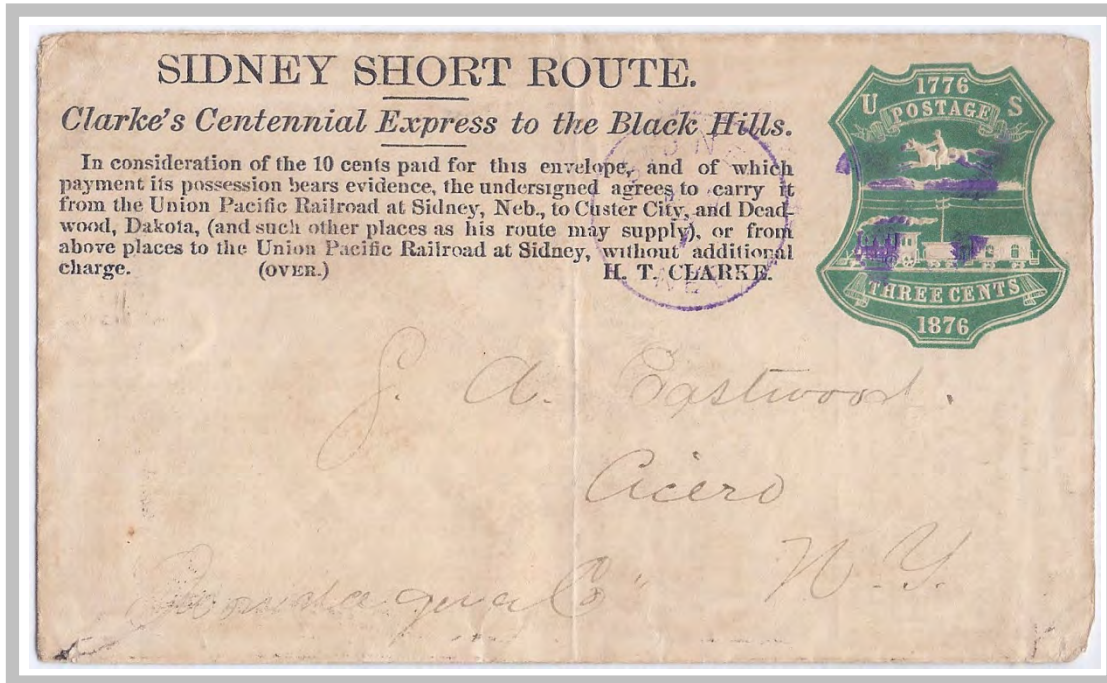 SIDNEY SHORT ROUTE.
Clarke's Centennial Express to the Black Hills.
In consideration of the 10 cents paid for this envelope, and of which
payment its possession bears evidence, the undersigned agrees to carry it
from the Union Pacific Railroad at Sidney, Neb., to Custer City, and Dead-
wood, Dakota, (and such other places as his route may supply), or from
above places to the Union Pacific Railroad at Sidney, without additional
charge. (OVER.) H. T. CLARKE.
1776
U POSTAGE S
THREE CENTS
1876
A. Eastwood.
Cicero
N. Y.
Co